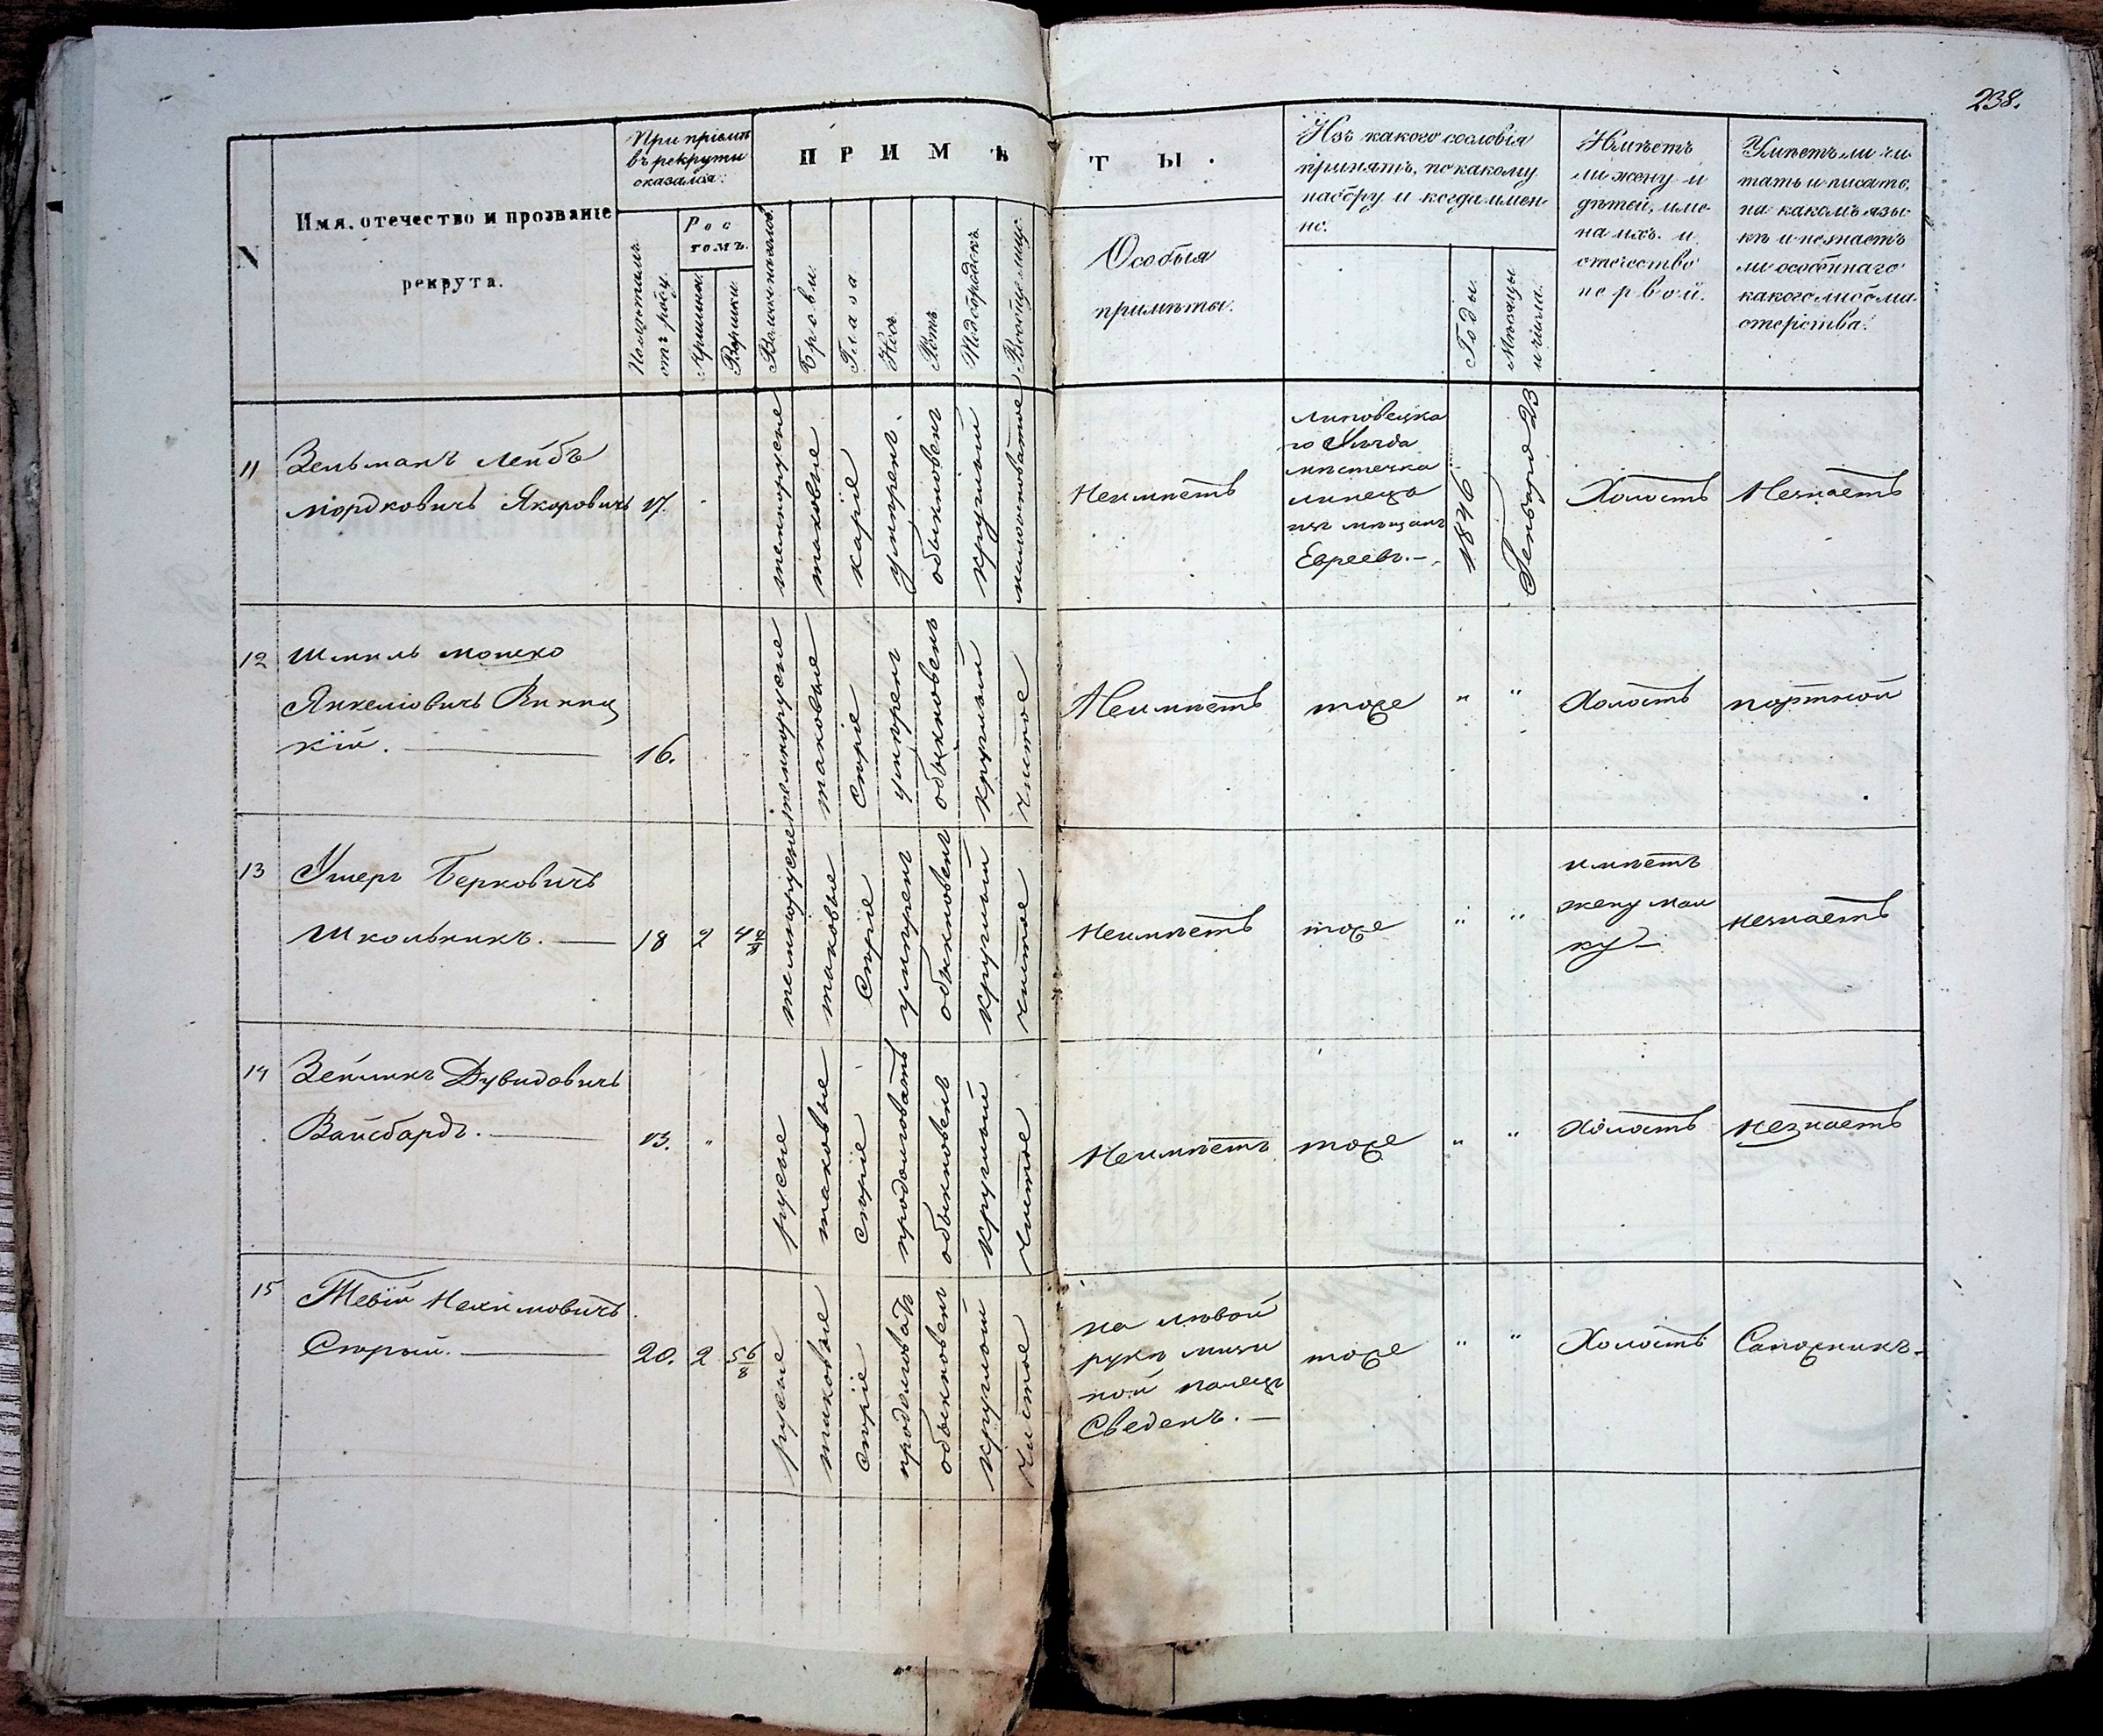 238.
N
Имя, отечество и прозваніе
рекрута.
При пріемѣ
въ рекруты
оказался:
Ростомъ.
Аршины
Вершки
ПРИМѢТЫ.
Брови.
Глаза
Носъ.
Ротъ
Подбородокъ.
Вообще лице.
Особыя
примѣты.
Изъ какого сословія
принятъ, по какому
набору и когда имен-
но.
Годы.
Мѣсяцы
и числа.
Имѣетъ
ли жену и
дѣтей, име-
на ихъ. и
отечество
первой.
Умѣетъ ли чи-
тать и писать,
на какомъ язы-
кѣ и незнаетъ
ли особеннаго
какого либо ма-
стерства.
11
Зельманъ Лейбъ
Мордковичъ
17.
темнорусые
таковые
каріе
умѣренъ.
обыкновенъ
круглый
Неимѣетъ
Липовецка
го Уѣзда
мѣстечка
Линецъ
изъ мѣщанъ
Евреевъ. —
1846
Генваря 23
Холостъ
Незнаетъ
12
Шмиль Мошко
Янкеліовичъ Винниц
кій. —
16.
темнорусые
таковые
Сѣріе
умѣренъ
обыкновенъ
круглый
Чистое
Неимѣетъ
тоже
"
"
Холостъ
портной
13
Ушеръ Берковичъ
Школьникъ. —
18
2
темнорусые
таковые
Сѣріе
умѣренъ
обыкновенъ
круглый
Чистое
Неимѣетъ
тоже
"
"
имѣетъ
жену Мал
ку —
незнаетъ
14
Зейликъ Дувидовичъ
Вайсбардъ. —
13.
"
русые
таковые
Сѣріе
продолговатъ
обыкновенъ
круглый
Чистое
Неимѣетъ
тоже
"
"
Холостъ
незнаетъ
15
Тевій Нахимовичъ
Старый. —
20.
2
5 6/8
русые
таковые
Сѣріе
продолговатъ
обыкновенъ
круглый
Чистое
на лѣвой
рукѣ мизи
ной палецъ
Сведенъ. —
тоже
"
"
Холостъ
Сапожникъ.